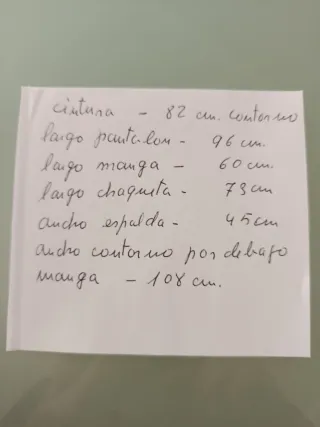 cintura - 82 cm. contorno
largo pantalon - 96 cm.
largo manga - 60 cm.
largo chaqueta - 73 cm
ancho espalda - 45 cm
ancho contorno por debajo
manga - 108 cm.